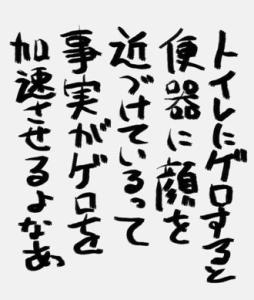 トイレにゲロすると
便器に顔を
近づけているって
事実がゲロを
加速させるよなあ